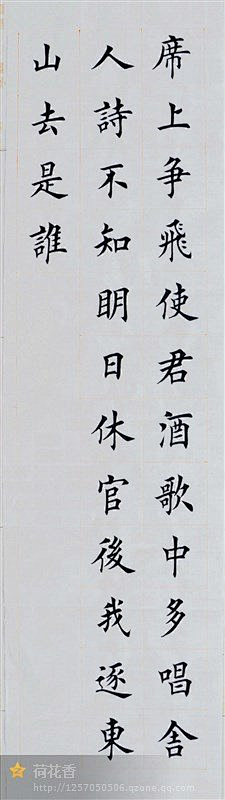 席上争飛使君酒歌中多唱舍
人詩不知明日休官後我逐東
山去是誰
荷花香
http://1257050506.qzone.qq.com